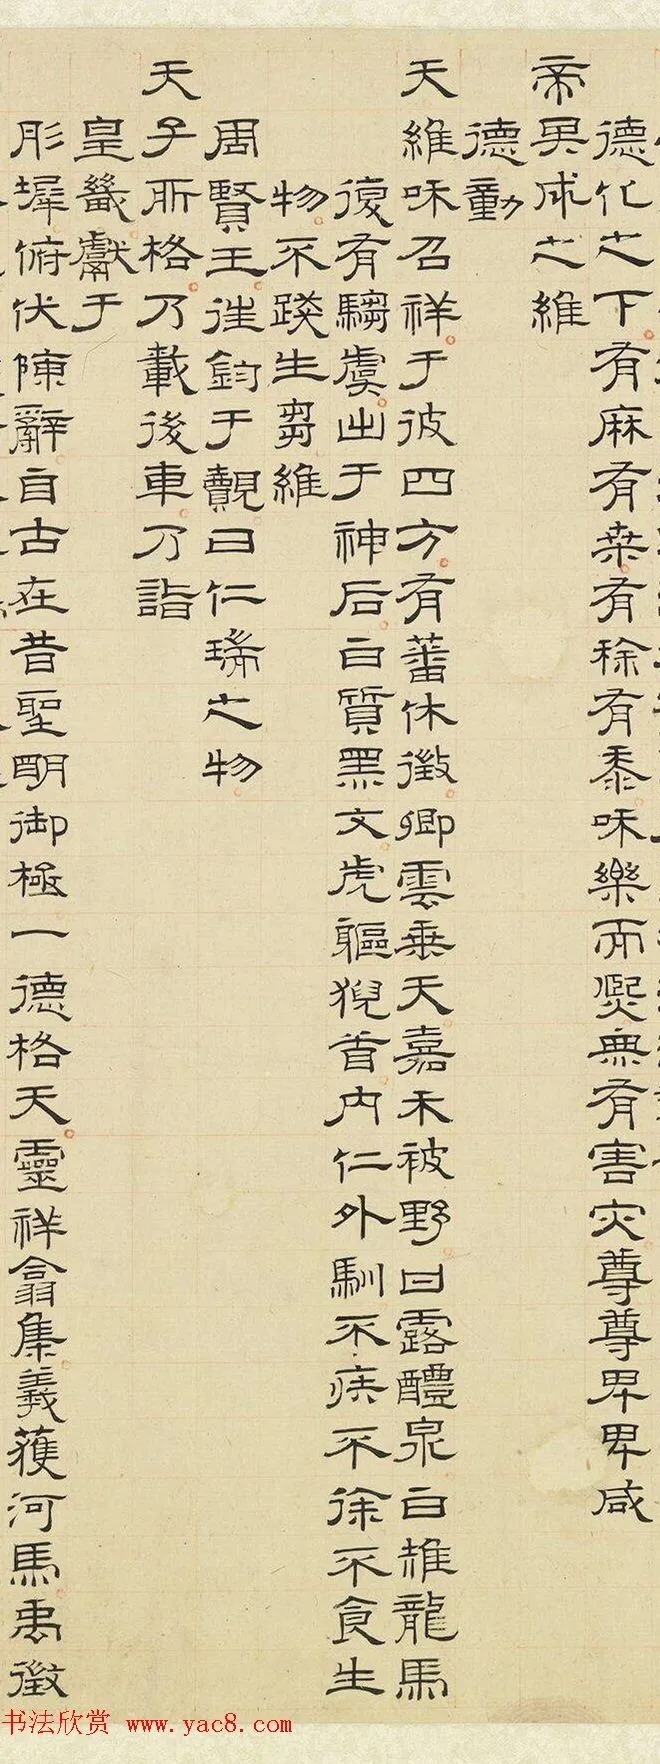 德化之下有麻有桒有稌有黍咊樂而熙無有害灾尊尊卑卑咸
帝畀成之維
德動
天維咊召祥于彼四方有蕃休徵卿雲乗天嘉禾被野甘露醴泉白雉龍馬
復有騶虞出于神后白質黑文虎軀猊首内仁外馴不疾不徐不食生
物不踐生芻維
周賢王徃鈞于覿曰仁瑞之物
天子所格乃載後車乃詣
皇畿獻于
彤墀俯伏陳辭自古在昔聖明御極一德格天靈祥翕集羲獲河馬禹徵
书法欣赏 www.yac8.com